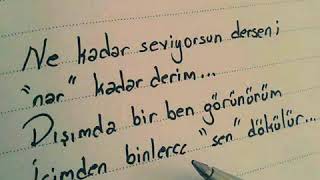 Ne kadar seviyorsun dersen;
"nar" kadar derim...
Dışımda bir ben görünürüm
İçimden binlerce "sen" dökülür...